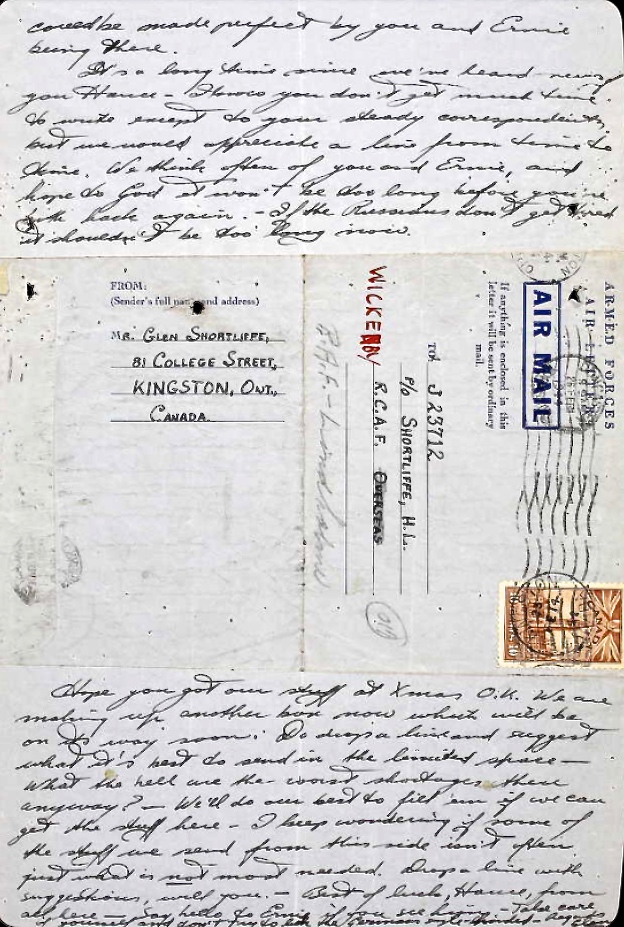 could be made perfect by you and Ernie
being there.
It's a long time since we've heard news of
you Hance - I know you don't get much time
to write except to your steady correspondents,
but we would appreciate a line from time to
time. We think often of you and Ernie, and
hope to God it won't be too long before you're
both back again. - If the Russians don't get tired
it shouldn't be too long now.
FROM:
(Sender's full name and address)
MR. GLEN SHORTLIFFE,
81 COLLEGE STREET,
KINGSTON, ONT.,
CANADA.
ARMED FORCES
AIR LETTER
AIR MAIL
If anything is enclosed in this
letter it will be sent by ordinary
mail.
TO: J 23712
P/O SHORTLIFFE, H.L.
R.C.A.F. OVERSEAS
WICKENBY
R.A.F. - Lindholme
CANADA
Hope you got our stuff at Xmas O.K. We are
making up another box now which will be
on its way soon. Do drop a line and suggest
what it's best to send in the limited space -
What the hell are the worst shortages there
anyway? - We'll do our best to fill 'em if we can
get the stuff here - I keep wondering if some of
the stuff we send from this side isn't often
just what is not most needed. Drop a line with
suggestions, will you. - Best of luck, Hance, from
all here - Say hello to Ernie if you see him - Take care
of yourself and don't try to lick the Germans single-handed - Regards
Glen